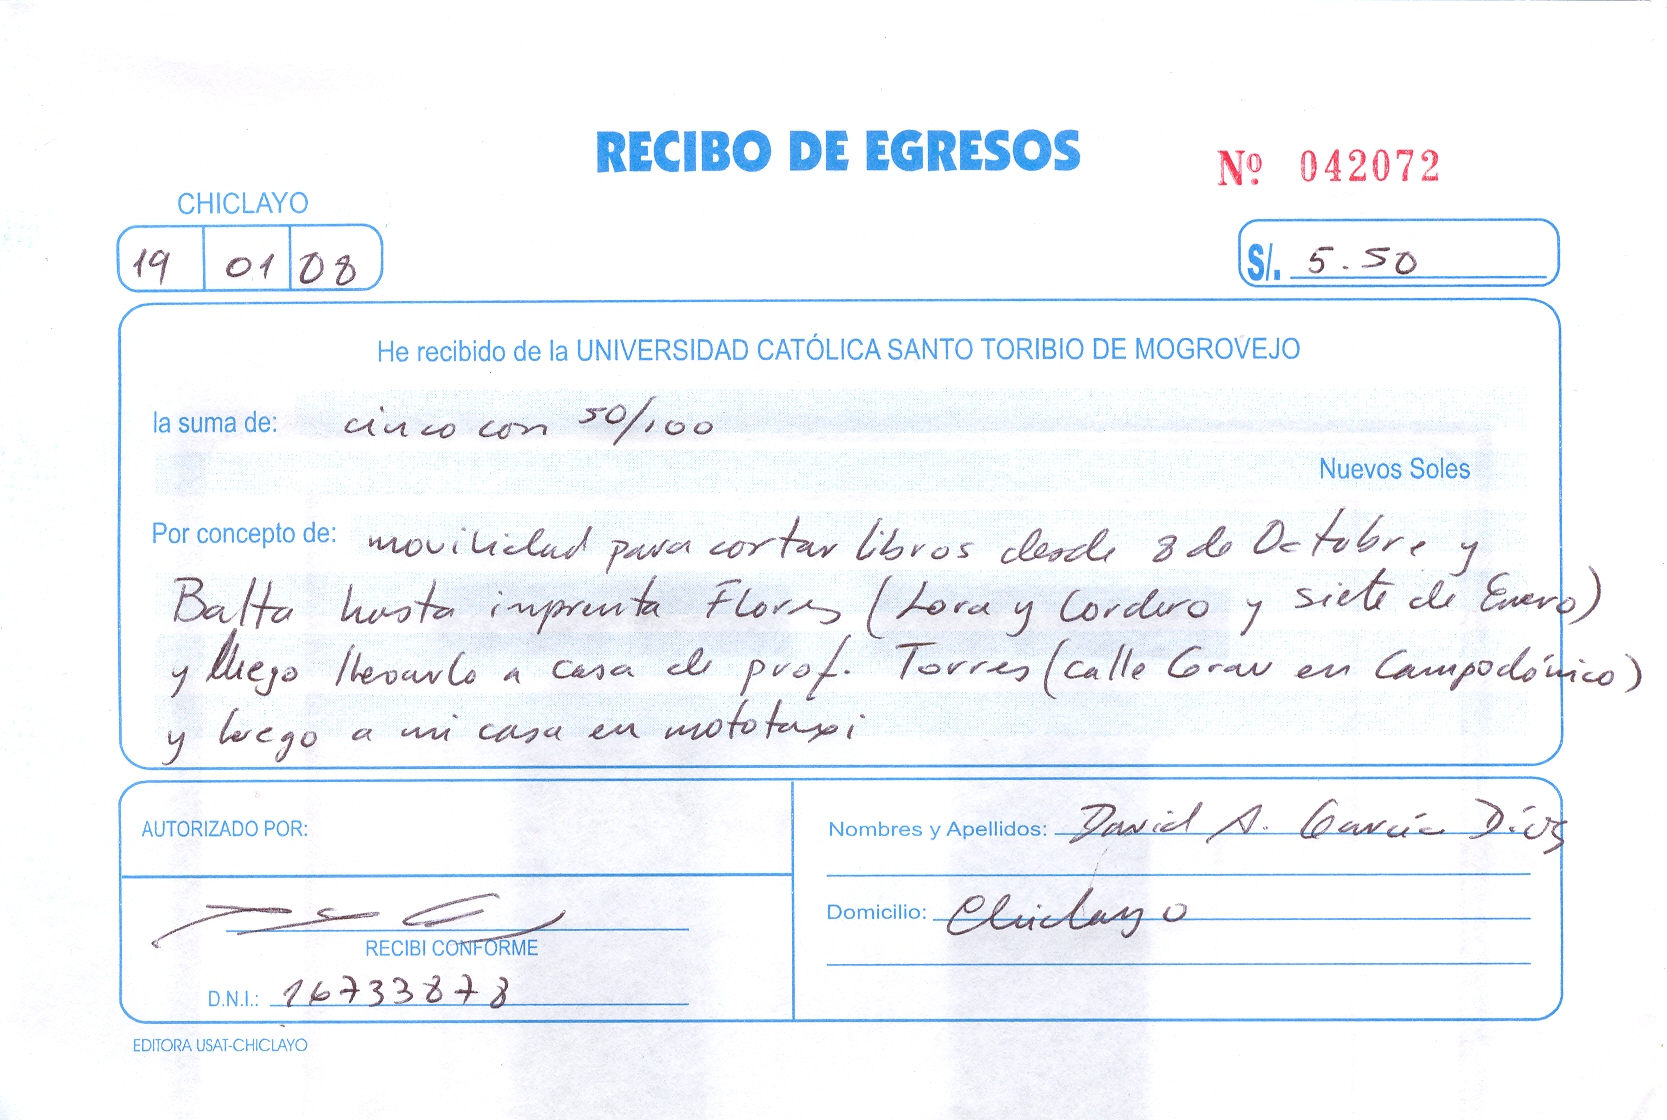 RECIBO DE EGRESOS
Nº 042072
CHICLAYO
19 01 08
S/. 5.50
He recibido de la UNIVERSIDAD CATÓLICA SANTO TORIBIO DE MOGROVEJO
la suma de: cinco con 50/100
Nuevos Soles
Por concepto de: movilidad para cortar libros desde 8 de Octubre y
Balta hasta imprenta Flores (Lora y Cordero y siete de Enero)
y luego llevarlo a casa de prof. Torres (calle Grau en Campodónico)
y luego a mi casa en mototaxi
AUTORIZADO POR:
Nombres y Apellidos: David A. García Díos
Domicilio: Chiclayo
RECIBI CONFORME
D.N.I.: 16733878
EDITORA USAT-CHICLAYO